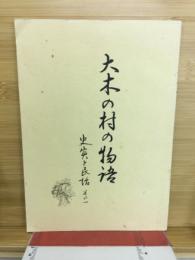 大木の村の物語
史実と民話 其の一